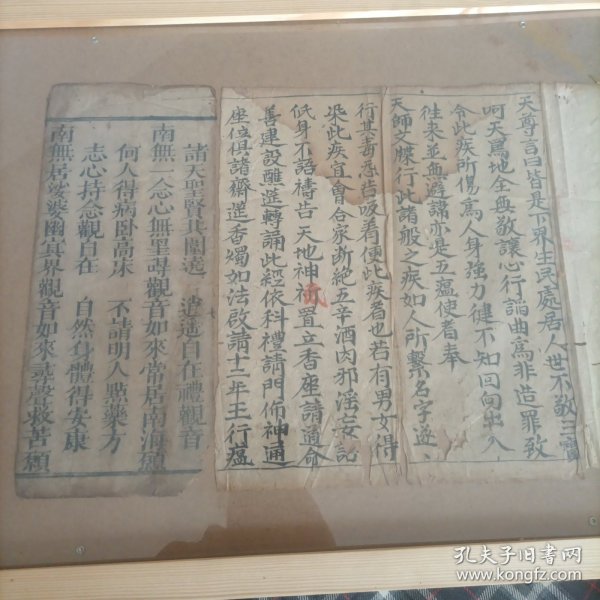 天尊言曰皆是下界生民處居人世不敬三寶
呵天罵地全無敬讓心行謟曲為非造罪致
令此疾所傷為人身強力健不知回向出入
往來並無避諱亦是五瘟使者奉
天師之牒行此諸般之疾如人所繫名字遂
行其毒惡皆吸着便此疾者也若有男女得
染此疾宜會合家断絶五辛酒肉邪滛妄語
低身不語禱告天地神祇置立香座請道命
善建設醮筵轉誦此經依科禮請門佈神通
座位俱諸齋筵香燭如法啟請十二年王行瘟
諸天聖賢共圍遶 逍遥自在禮觀音
南無一念心無罣礙觀音如來常居南海願
何人得病卧高床 不請明人點藥方
志心持念觀自在 自然身體得安康
南無居娑婆幽冥界觀音如來尋聲救苦願
孔夫子旧书网
www.kongfz.com